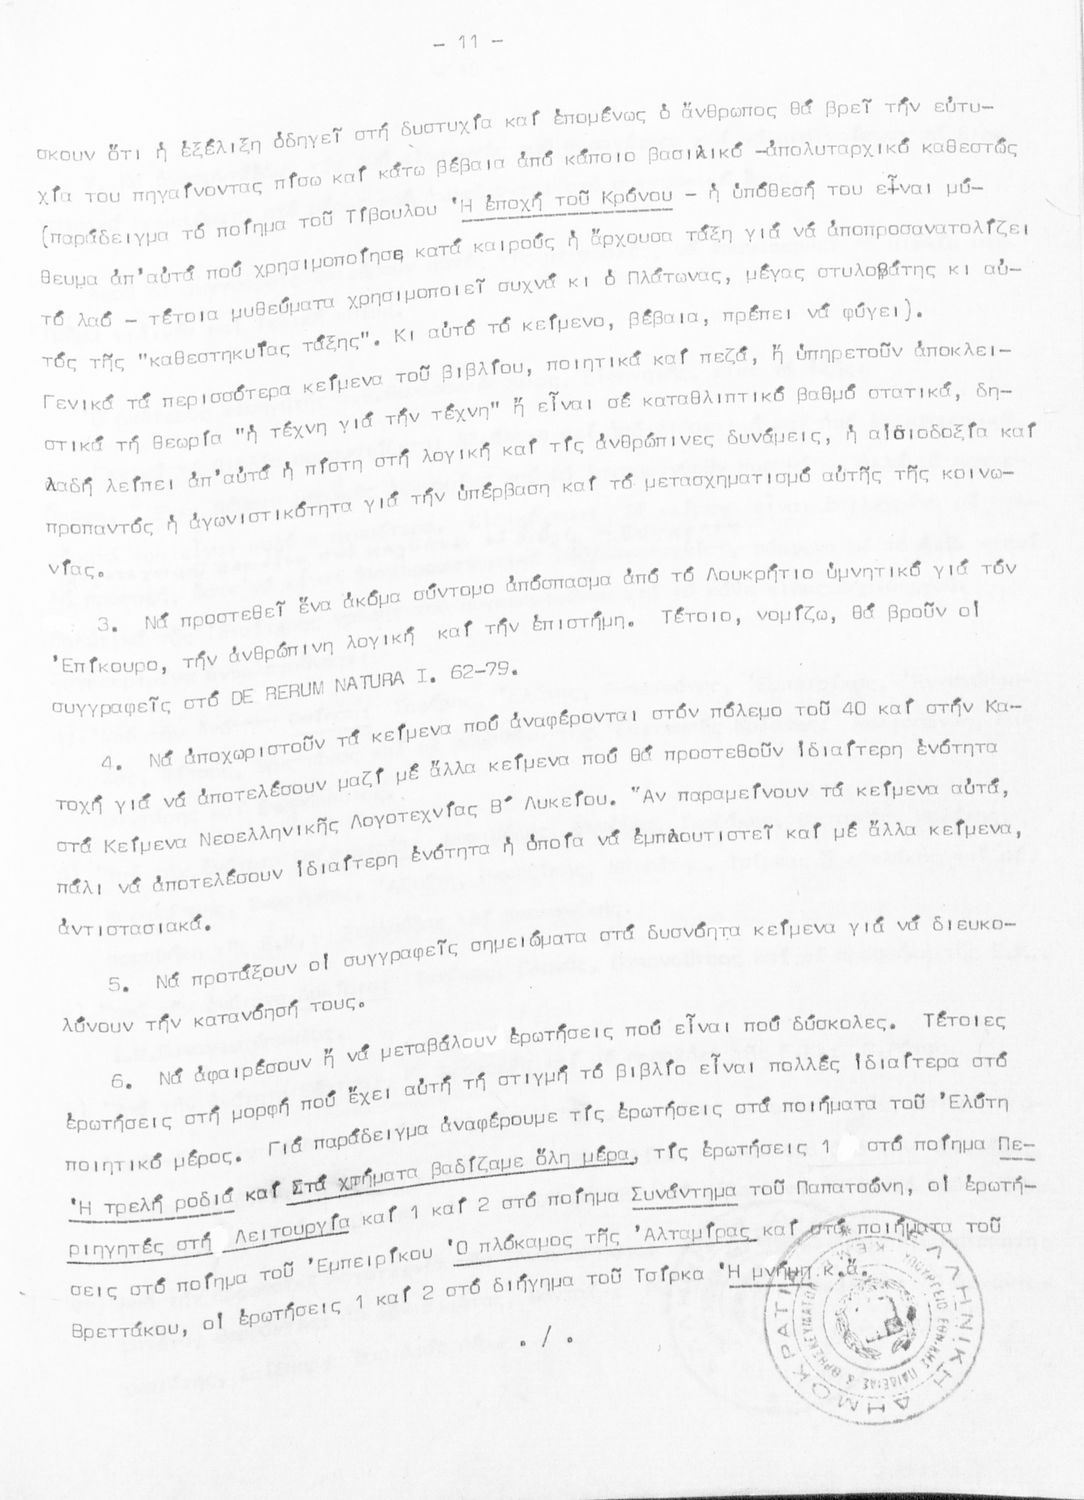 - 11 -
σκουν ὅτι ἡ ἐξέλιξη ὁδηγεῖ στή δυστυχία καί ἑπομένως ὁ ἄνθρωπος θά βρεῖ τήν εὐτυ-
χία του πηγαίνοντας πίσω καί κάτω βέβαια ἀπό κάποιο βασιλικό -ἀπολυταρχικό καθεστώς
(παράδειγμα τό ποίημα τοῦ Τίβουλου Ἡ ἐποχή τοῦ Κρόνου - ἡ ὑπόθεσή του εἶναι μύ-
θευμα ἀπ'αὐτά πού χρησιμοποίησε κατά καιρούς ἡ ἄρχουσα τάξη γιά νά ἀποπροσανατολίζει
τό λαό - τέτοια μυθεύματα χρησιμοποιεῖ συχνά κι ὁ Πλάτωνας, μέγας στυλοβάτης κι αὐ-
τός τῆς "καθεστηκυίας τάξης". Κι αὐτό τό κείμενο, βέβαια, πρέπει νά φύγει).
Γενικά τά περισσότερα κείμενα τοῦ βιβλίου, ποιητικά καί πεζά, ἤ ὑπηρετοῦν ἀποκλει-
στικά τή θεωρία "ἡ τέχνη γιά τήν τέχνη" ἤ εἶναι σέ καταθλιπτικό βαθμό στατικά, δη-
λαδή λείπει ἀπ'αὐτά ἡ πίστη στή λογική καί τίς ἀνθρώπινες δυνάμεις, ἡ αἰσιοδοξία καί
προπαντός ἡ ἀγωνιστικότητα γιά τήν ὑπέρβαση καί τό μετασχηματισμό αὐτῆς τῆς κοινω-
νίας.
3. Νά προστεθεῖ ἕνα ἀκόμα σύντομο ἀπόσπασμα ἀπό τό Λουκρήτιο ὑμνητικό γιά τόν
Ἐπίκουρο, τήν ἀνθρώπινη λογική καί τήν ἐπιστήμη. Τέτοιο, νομίζω, θά βροῦν οἱ
συγγραφεῖς στό DE RERUM NATURA I. 62-79.
4. Νά ἀποχωριστοῦν τά κείμενα πού ἀναφέρονται στόν πόλεμο τοῦ 40 καί στήν Κα-
τοχή γιά νά ἀποτελέσουν μαζί μέ ἄλλα κείμενα πού θά προστεθοῦν ἰδιαίτερη ἑνότητα
στά Κείμενα Νεοελληνικῆς Λογοτεχνίας Β΄ Λυκείου. Ἄν παραμείνουν τά κείμενα αὐτά,
πάλι νά ἀποτελέσουν ἰδιαίτερη ἑνότητα ἡ ὁποία νά ἐμπλουτιστεῖ καί μέ ἄλλα κείμενα,
ἀντιστασιακά.
5. Νά προτάξουν οἱ συγγραφεῖς σημειώματα στά δυσνόητα κείμενα γιά νά διευκο-
λύνουν τήν κατανόησή τους.
6. Νά ἀφαιρέσουν ἤ νά μεταβάλουν ἐρωτήσεις πού εἶναι πού δύσκολες. Τέτοιες
ἐρωτήσεις στή μορφή πού ἔχει αὐτή τή στιγμή τό βιβλίο εἶναι πολλές ἰδιαίτερα στό
ποιητικό μέρος. Γιά παράδειγμα ἀναφέρουμε τίς ἐρωτήσεις στά ποιήματα τοῦ Ἐλύτη
Ἡ τρελή ροδιά καί Στά χτήματα βαδίζαμε ὅλη μέρα, τίς ἐρωτήσεις 1 στό ποίημα Πε-
ριηγητές στή Λειτουργία καί 1 καί 2 στό ποίημα Συνάντημα τοῦ Παπατσώνη, οἱ ἐρωτή-
σεις στό ποίημα τοῦ Ἐμπειρίκου Ὁ πλόκαμος τῆς Ἀλταμίρας καί στά ποιήματα τοῦ
Βρεττάκου, οἱ ἐρωτήσεις 1 καί 2 στό διήγημα τοῦ Τσίρκα Ἡ μνήμη κ.ἄ.
. / .
ΕΛΛΗΝΙΚΗ ΔΗΜΟΚΡΑΤΙΑ
ΥΠΟΥΡΓΕΙΟ ΕΘΝΙΚΗΣ ΠΑΙΔΕΙΑΣ & ΘΡΗΣΚΕΥΜΑΤΩΝ